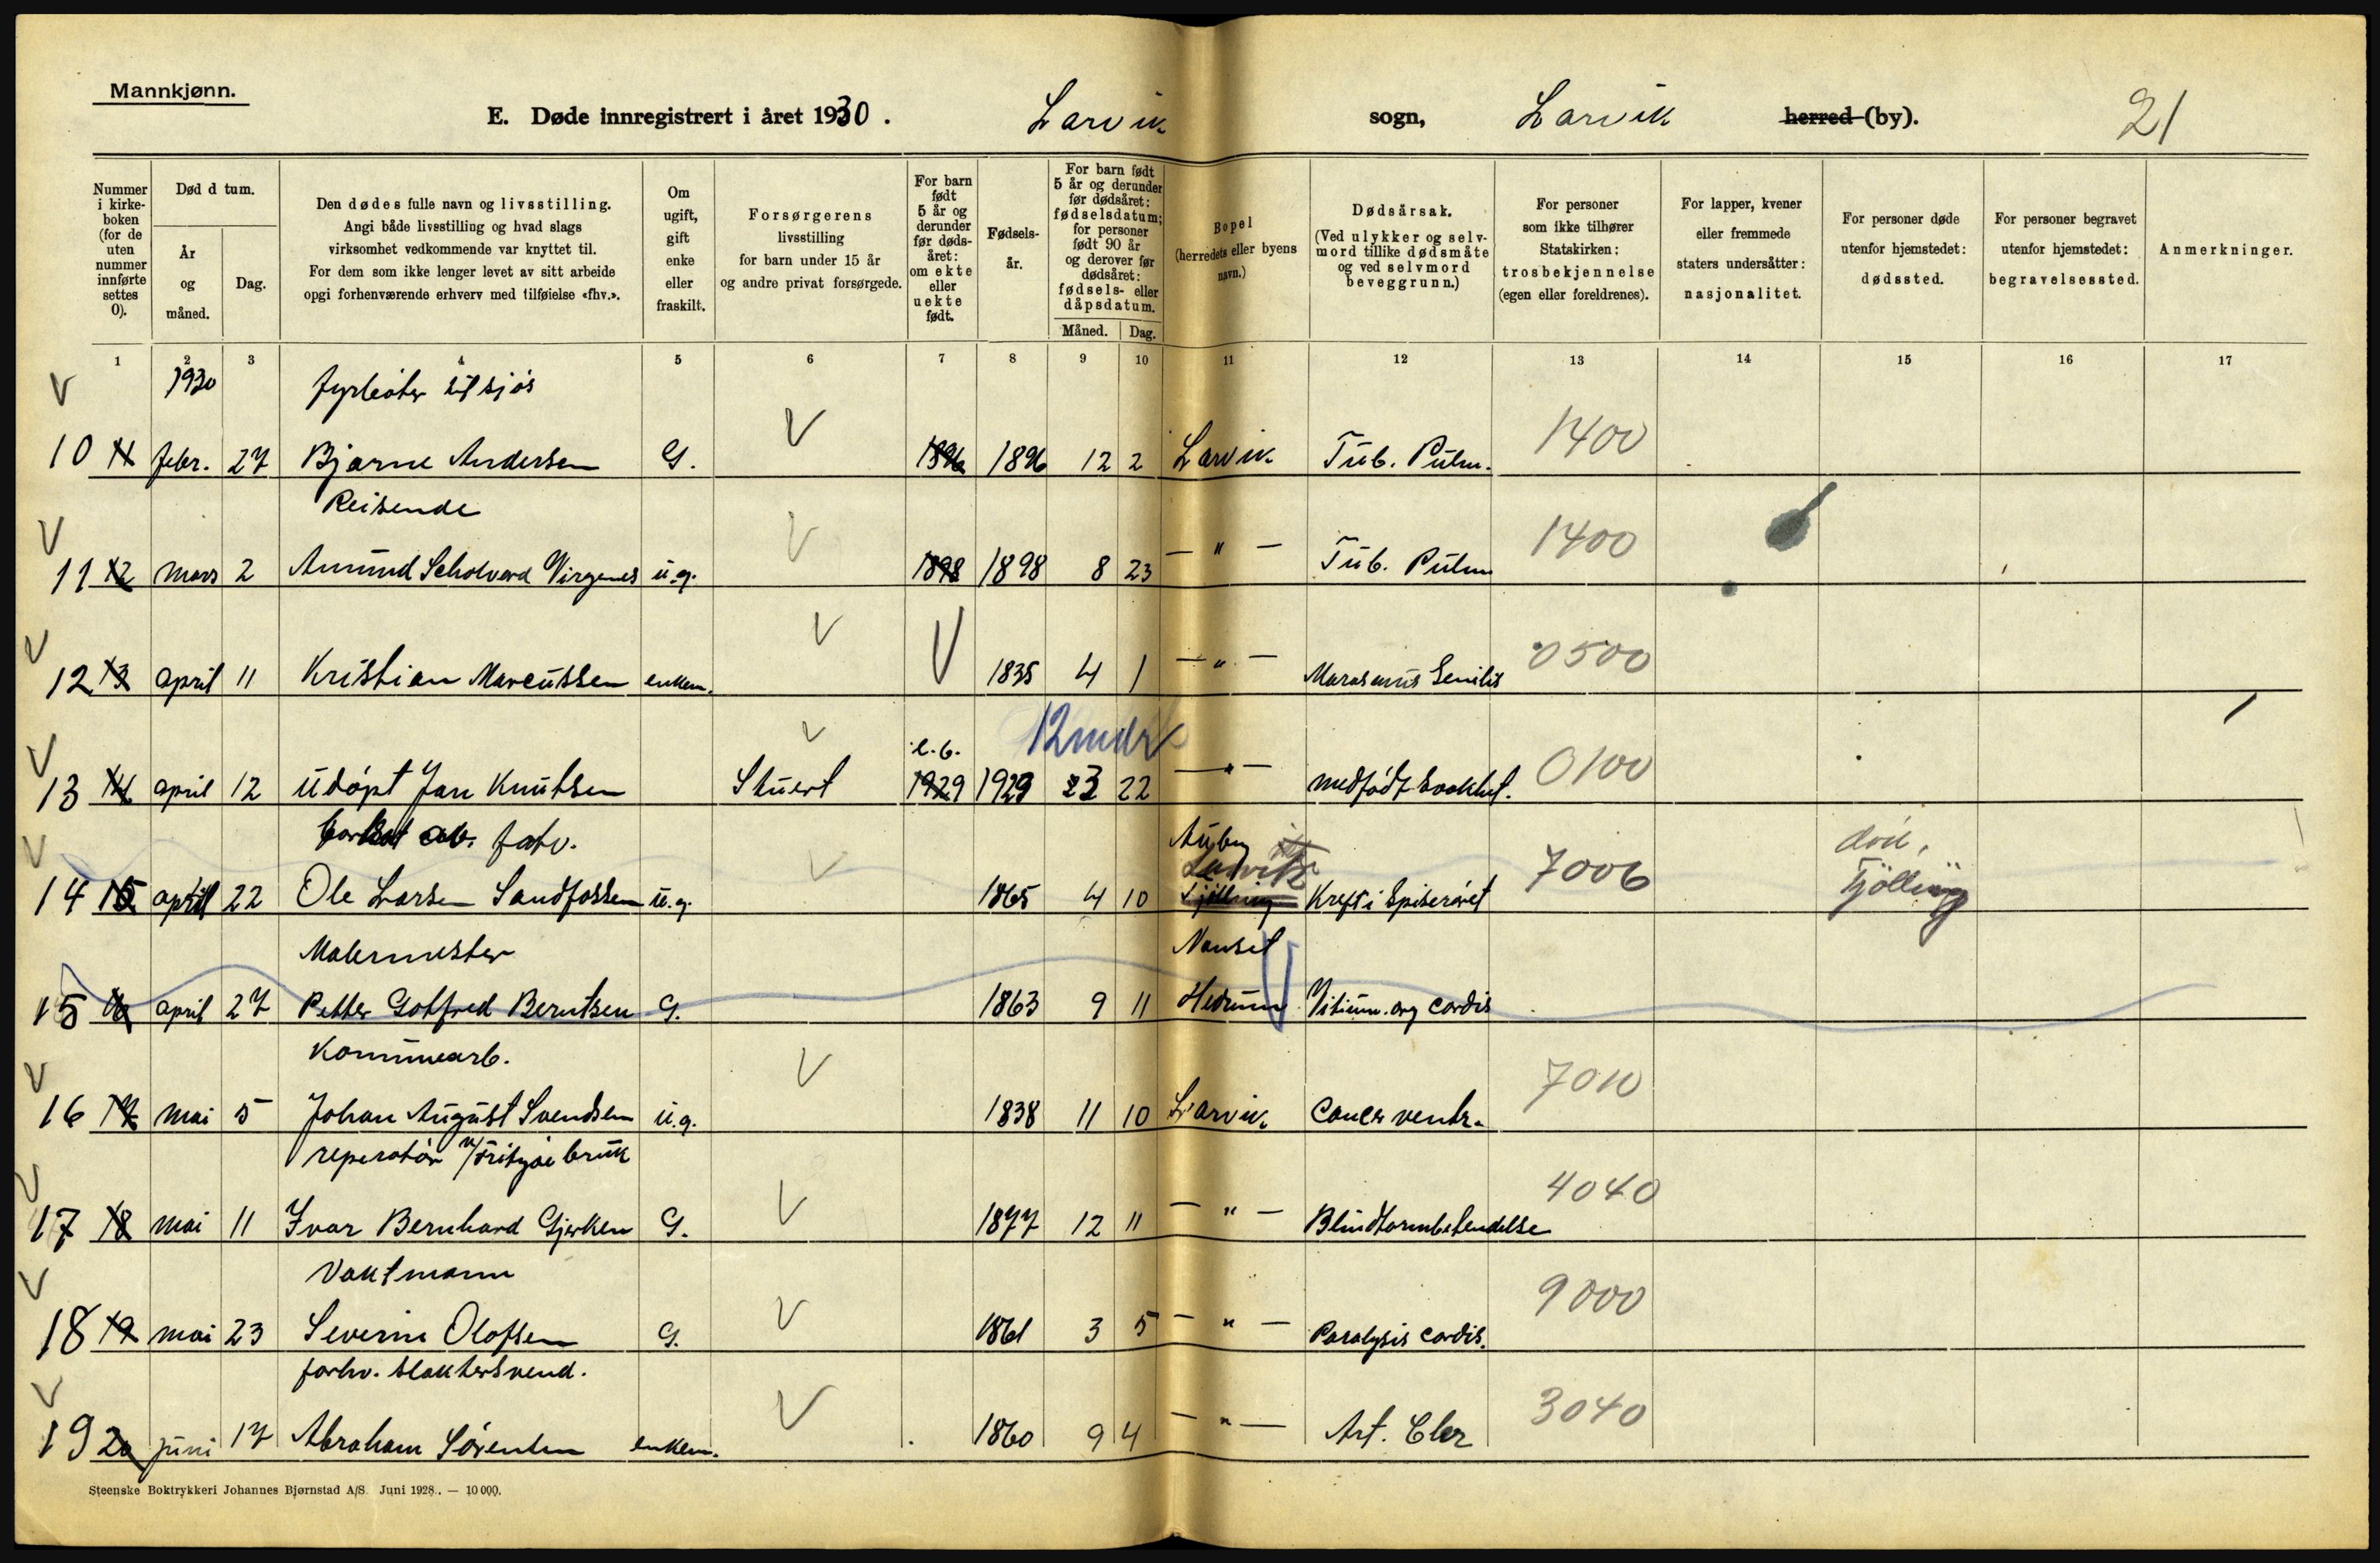 Mannkjønn.
E. Døde innregistrert i året 1930. Larvik sogn, Larvik herred (by). 21
Nummer i kirkeboken (for de uten nummer innførte settes 0).
Død d tum.
År og måned.
Dag.
Den dødes fulle navn og livsstilling.
Angi både livsstilling og hvad slags
virksomhet vedkommende var knyttet til.
For dem som ikke lenger levet av sitt arbeide
opgi forhenværende erhverv med tilføielse «fhv.».
Om ugift, gift enke eller fraskilt.
Forsørgerens livsstilling for barn under 15 år og andre privat forsørgede.
For barn født 5 år og derunder før dødsåret: om ekte eller uekte født.
Fødselsår.
For barn født 5 år og derunder før dødsåret: fødselsdatum; for personer født 90 år og derover før dødsåret: fødsels- eller dåpsdatum.
Måned. Dag.
Bopel (herredets eller byens navn.)
Dødsårsak. (Ved ulykker og selvmord tillike dødsmåte og ved selvmord beveggrunn.)
For personer som ikke tilhører Statskirken: trosbekjennelse (egen eller foreldrenes).
For lapper, kvener eller fremmede staters undersåtter: nasjonalitet.
For personer døde utenfor hjemstedet: dødssted.
For personer begravet utenfor hjemstedet: begravelsessted.
Anmerkninger.
1 2 3 4 5 6 7 8 9 10 11 12 13 14 15 16 17
1930 fyrbøter til sjøs
10 11 febr. 27 Bjarne Andersen G. 1896 1896 12 2 Larvik Tub. Pulm. 1400
Reisende
11 12 mars 2 Amund Virgenes u.g. 1898 1898 8 23 — " — Tub. Pulm 1400
12 13 april 11 Kristian Marcussen enkem. 1835 4 1 — " — Marasmus Senilis 0500
e.b. 12 mdr
13 14 april 12 udøpt Jan Knutsen Stuert 1929 1929 3 22 — " — medfødt svakhet. 0100
fatv. Auby
14 15 april 22 Ole Larsen Sandfossen u.g. 1865 4 10 Larvik Tjølling Kreft i Spiserøret 7006 Tjølling
Malermester Nanset
15 16 april 27 Petter Gotfred Berntsen G. 1863 9 11 Hedrum Vitium. org cordis
Kommunearb.
16 17 mai 5 Johan August Svendsen u.g. 1838 11 10 Larvik Cancer ventr. 7010
reperatør v/Fritzøe bruk
17 18 mai 11 Ivar Bernhard Gjerken G. 1877 12 11 — " — Blindtarmbetendelse 4040
Vaktmann
18 19 mai 23 Severin Olofsen G. 1861 3 5 — " — Paralysis cordis. 9000
forhv. slaktersvend.
19 20 juni 17 Abraham Sørensen enkem. 1860 9 4 — " — Art. Cler 3040
Steenske Boktrykkeri Johannes Bjørnstad A/S. Juni 1928. — 10 000.